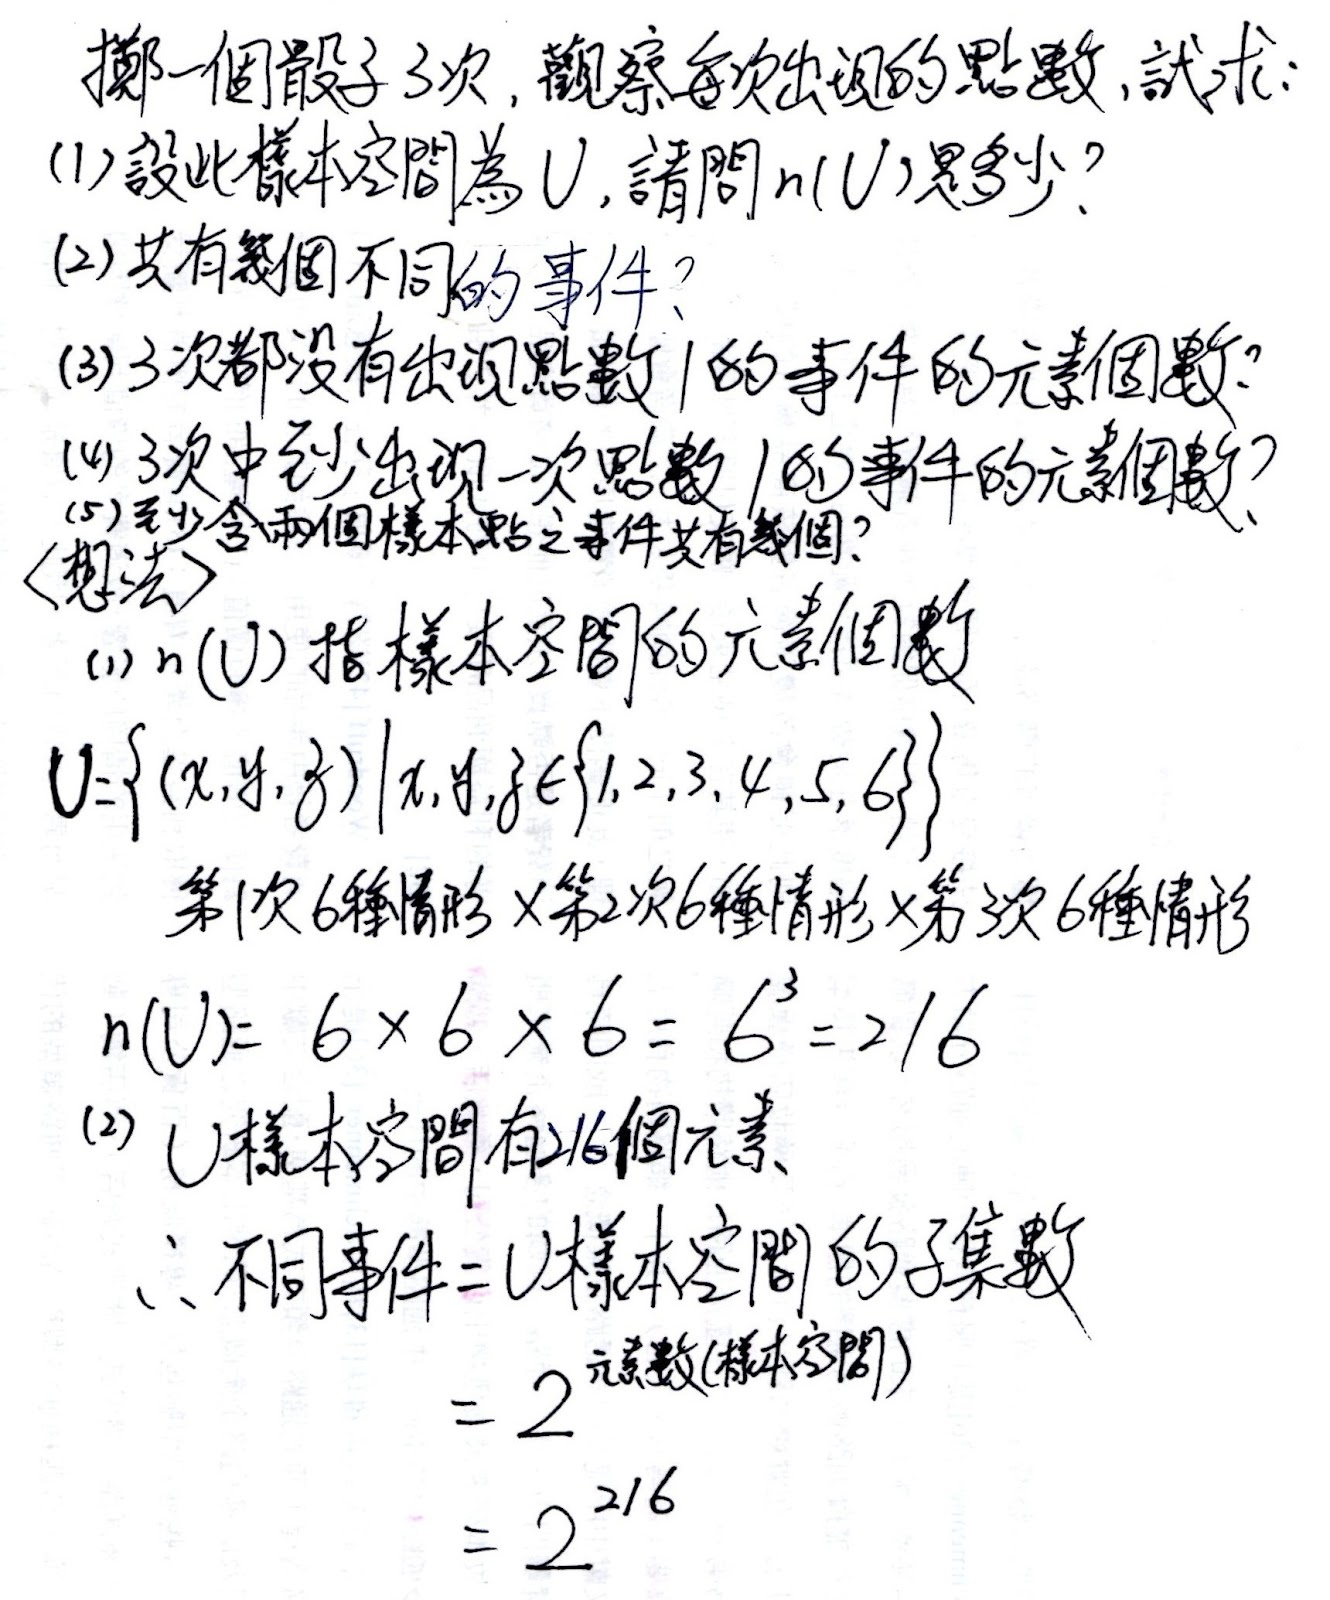 擲一個骰子3次,觀察每次出現的點數,試求:
(1)設此樣本空間為U,請問n(U)是多少?
(2)共有幾個不同的事件?
(3)3次都沒有出現點數1的事件的元素個數?
(4)3次中至少出現一次點數1的事件的元素個數?
(5)至少含兩個樣本點之事件共有幾個?
<想法>
(1) n(U)指樣本空間的元素個數
U={(x,y,z)|x,y,z∈{1,2,3,4,5,6}}
第1次6種情形×第2次6種情形×第3次6種情形
n(U)= 6 × 6 × 6 = 6³ = 216
(2) U樣本空間有216個元素
∴不同事件=U樣本空間的子集數
= 2^元素數(樣本空間)
= 2^216